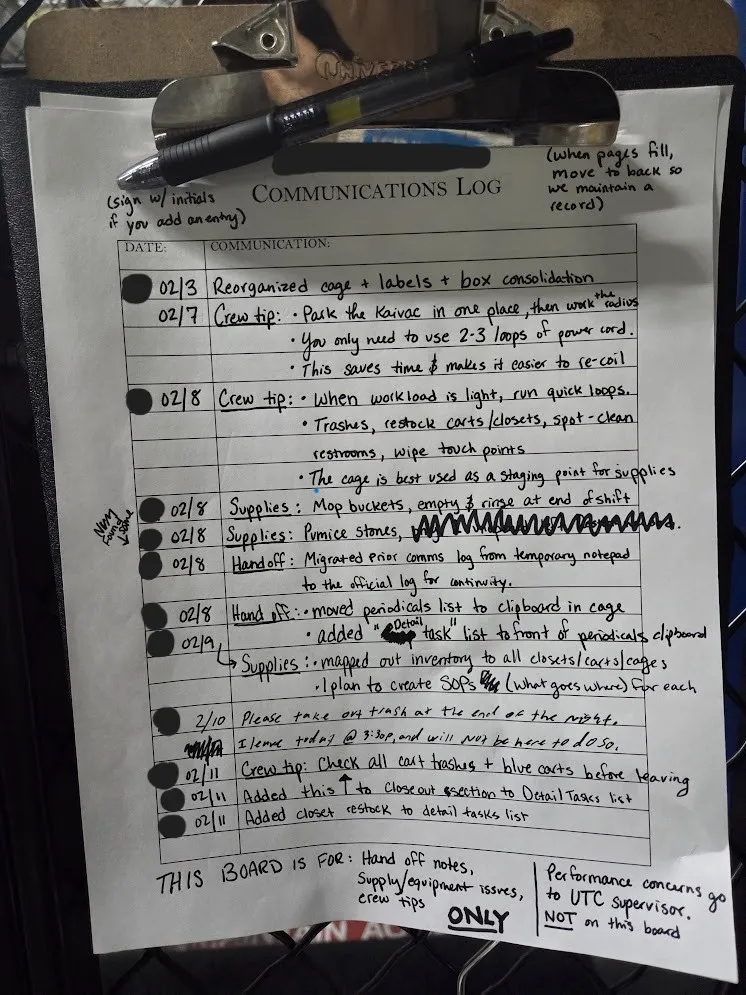 UNIVERS
(sign w/ initials
if you add an entry)
COMMUNICATIONS LOG
(when pages fill,
move to back so
we maintain a
record)
DATE: COMMUNICATION:
02/3 Reorganized cage + labels + box consolidation
02/7 Crew tip: • Park the Kaivac in one place, then work the radius
• You only need to use 2-3 loops of power cord.
• This saves time & makes it easier to re-coil
02/8 Crew tip: • When workload is light, run quick loops.
• Trashes, restock carts/closets, spot-clean
restrooms, wipe touch points
• The cage is best used as a staging point for supplies
02/8 Supplies: Mop buckets, empty & rinse at end of shift
NVM
found
some
02/8 Supplies: Pumice stones,
02/8 Handoff: Migrated Prior comms log from temporary notepad
to the official log for continuity.
02/8 Hand off: • moved periodicals list to clipboard in cage
02/9 • added "Detail task" list to front of periodicals clipboard
Supplies: • mapped out inventory to all closets/carts/cages
• I plan to create SOPs (what goes where) for each
2/10 Please take out trash at the end of the night.
I leave today @ 3:30p, and will not be here to do so.
02/11 Crew tip: Check all cart trashes + blue carts before leaving
02/11 Added this ↑ to closeout section to Detail Tasks list
02/11 Added closet restock to detail tasks list
THIS BOARD IS FOR: Hand off notes,
Supply/equipment issues,
crew tips
ONLY
Performance concerns go
to UTC supervisor.
NOT on this board